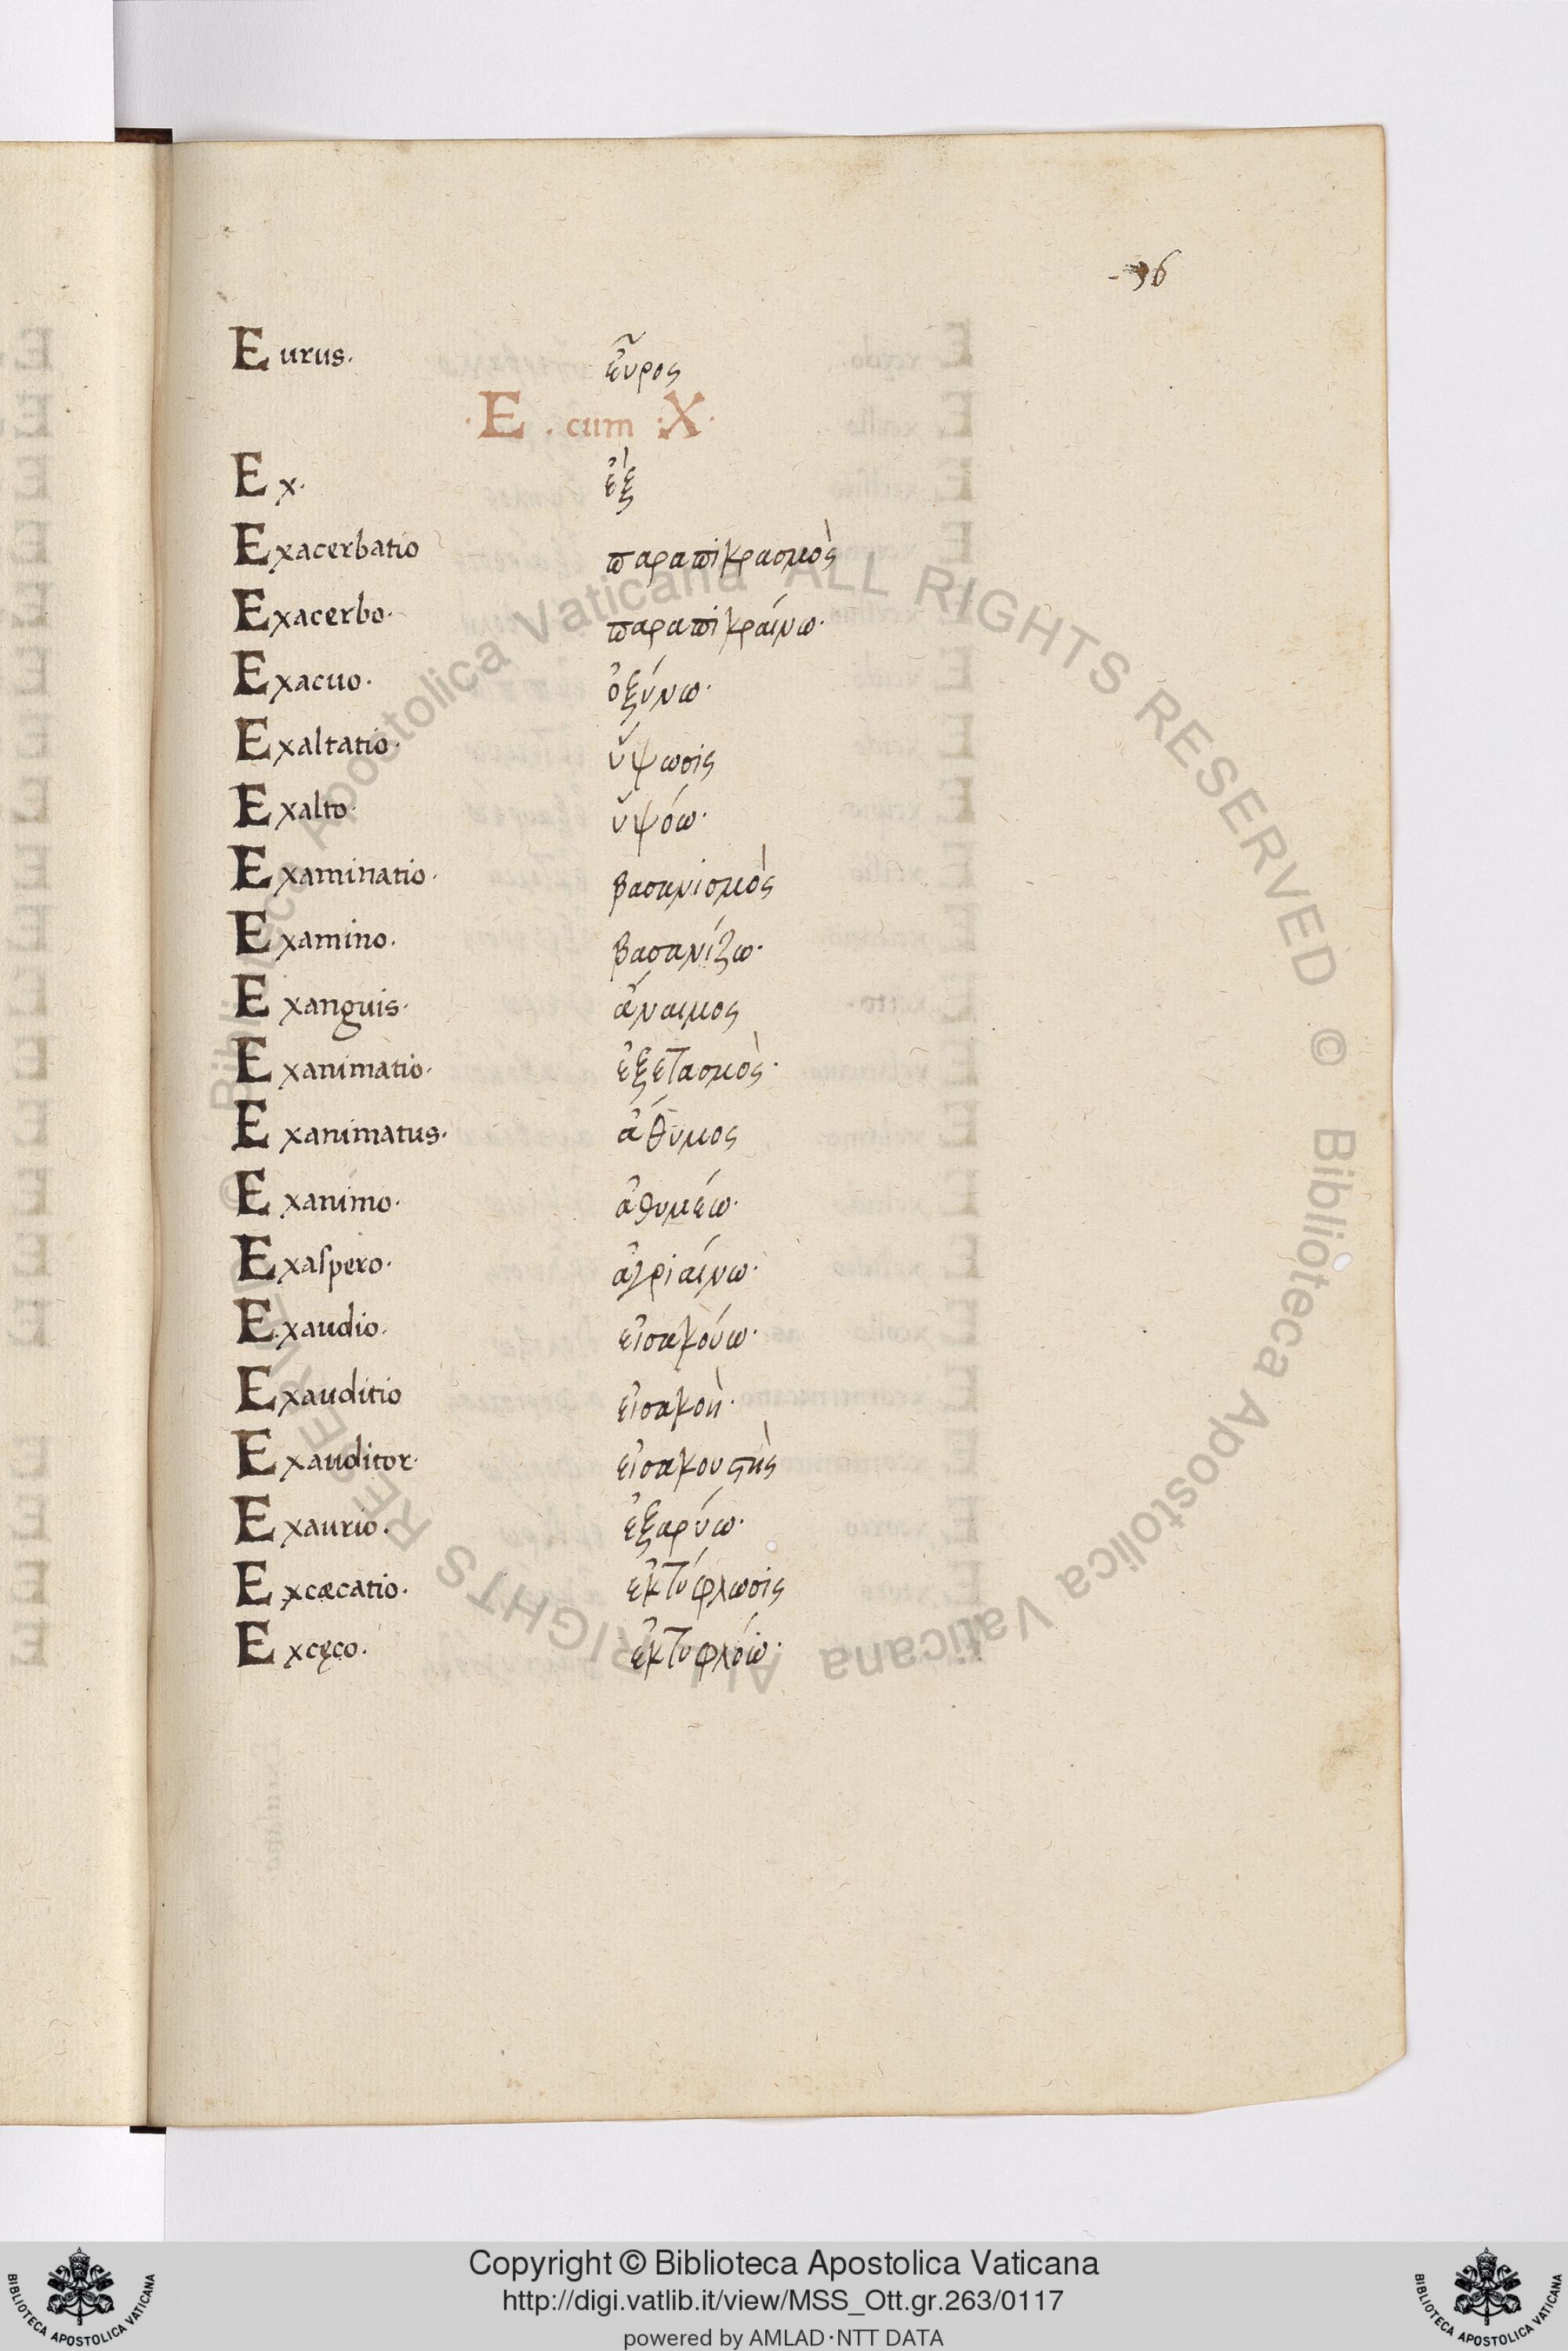 96
Eurus. εὖρος
·E. cum :X·
Ex. ἐξ
Exacerbatio παραπικρασμὸς
Exacerbo. παραπικραίνω.
Exacuo. ὀξύνω.
Exaltatio. ὕψωσις
Exalto. ὑψόω.
Examinatio. βασανισμὸς
Examino. βασανίζω.
Exanguis. ἄναιμος
Exanimatio. ἐξετασμὸς.
Exanimatus. ἄθυμος
Exanimo. ἀθυμέω.
Exaſpero. ἀγριαίνω.
Exaudio. εἰσακούω.
Exauditio εἰσακοὴ.
Exauditor. εἰσακουστὴς
Exaurio. ἐξαρύω.
Excæcatio. ἐκτύφλωσις
Excęco. ἐκτυφλόω.
© Biblioteca Apostolica Vaticana ALL RIGHTS RESERVED © Biblioteca Apostolica Vaticana ALL RIGHTS RESERVED
Copyright © Biblioteca Apostolica Vaticana
http://digi.vatlib.it/view/MSS_Ott.gr.263/0117
powered by AMLAD·NTT DATA
BIBLIOTECA APOSTOLICA VATICANA
BIBLIOTECA APOSTOLICA VATICANA